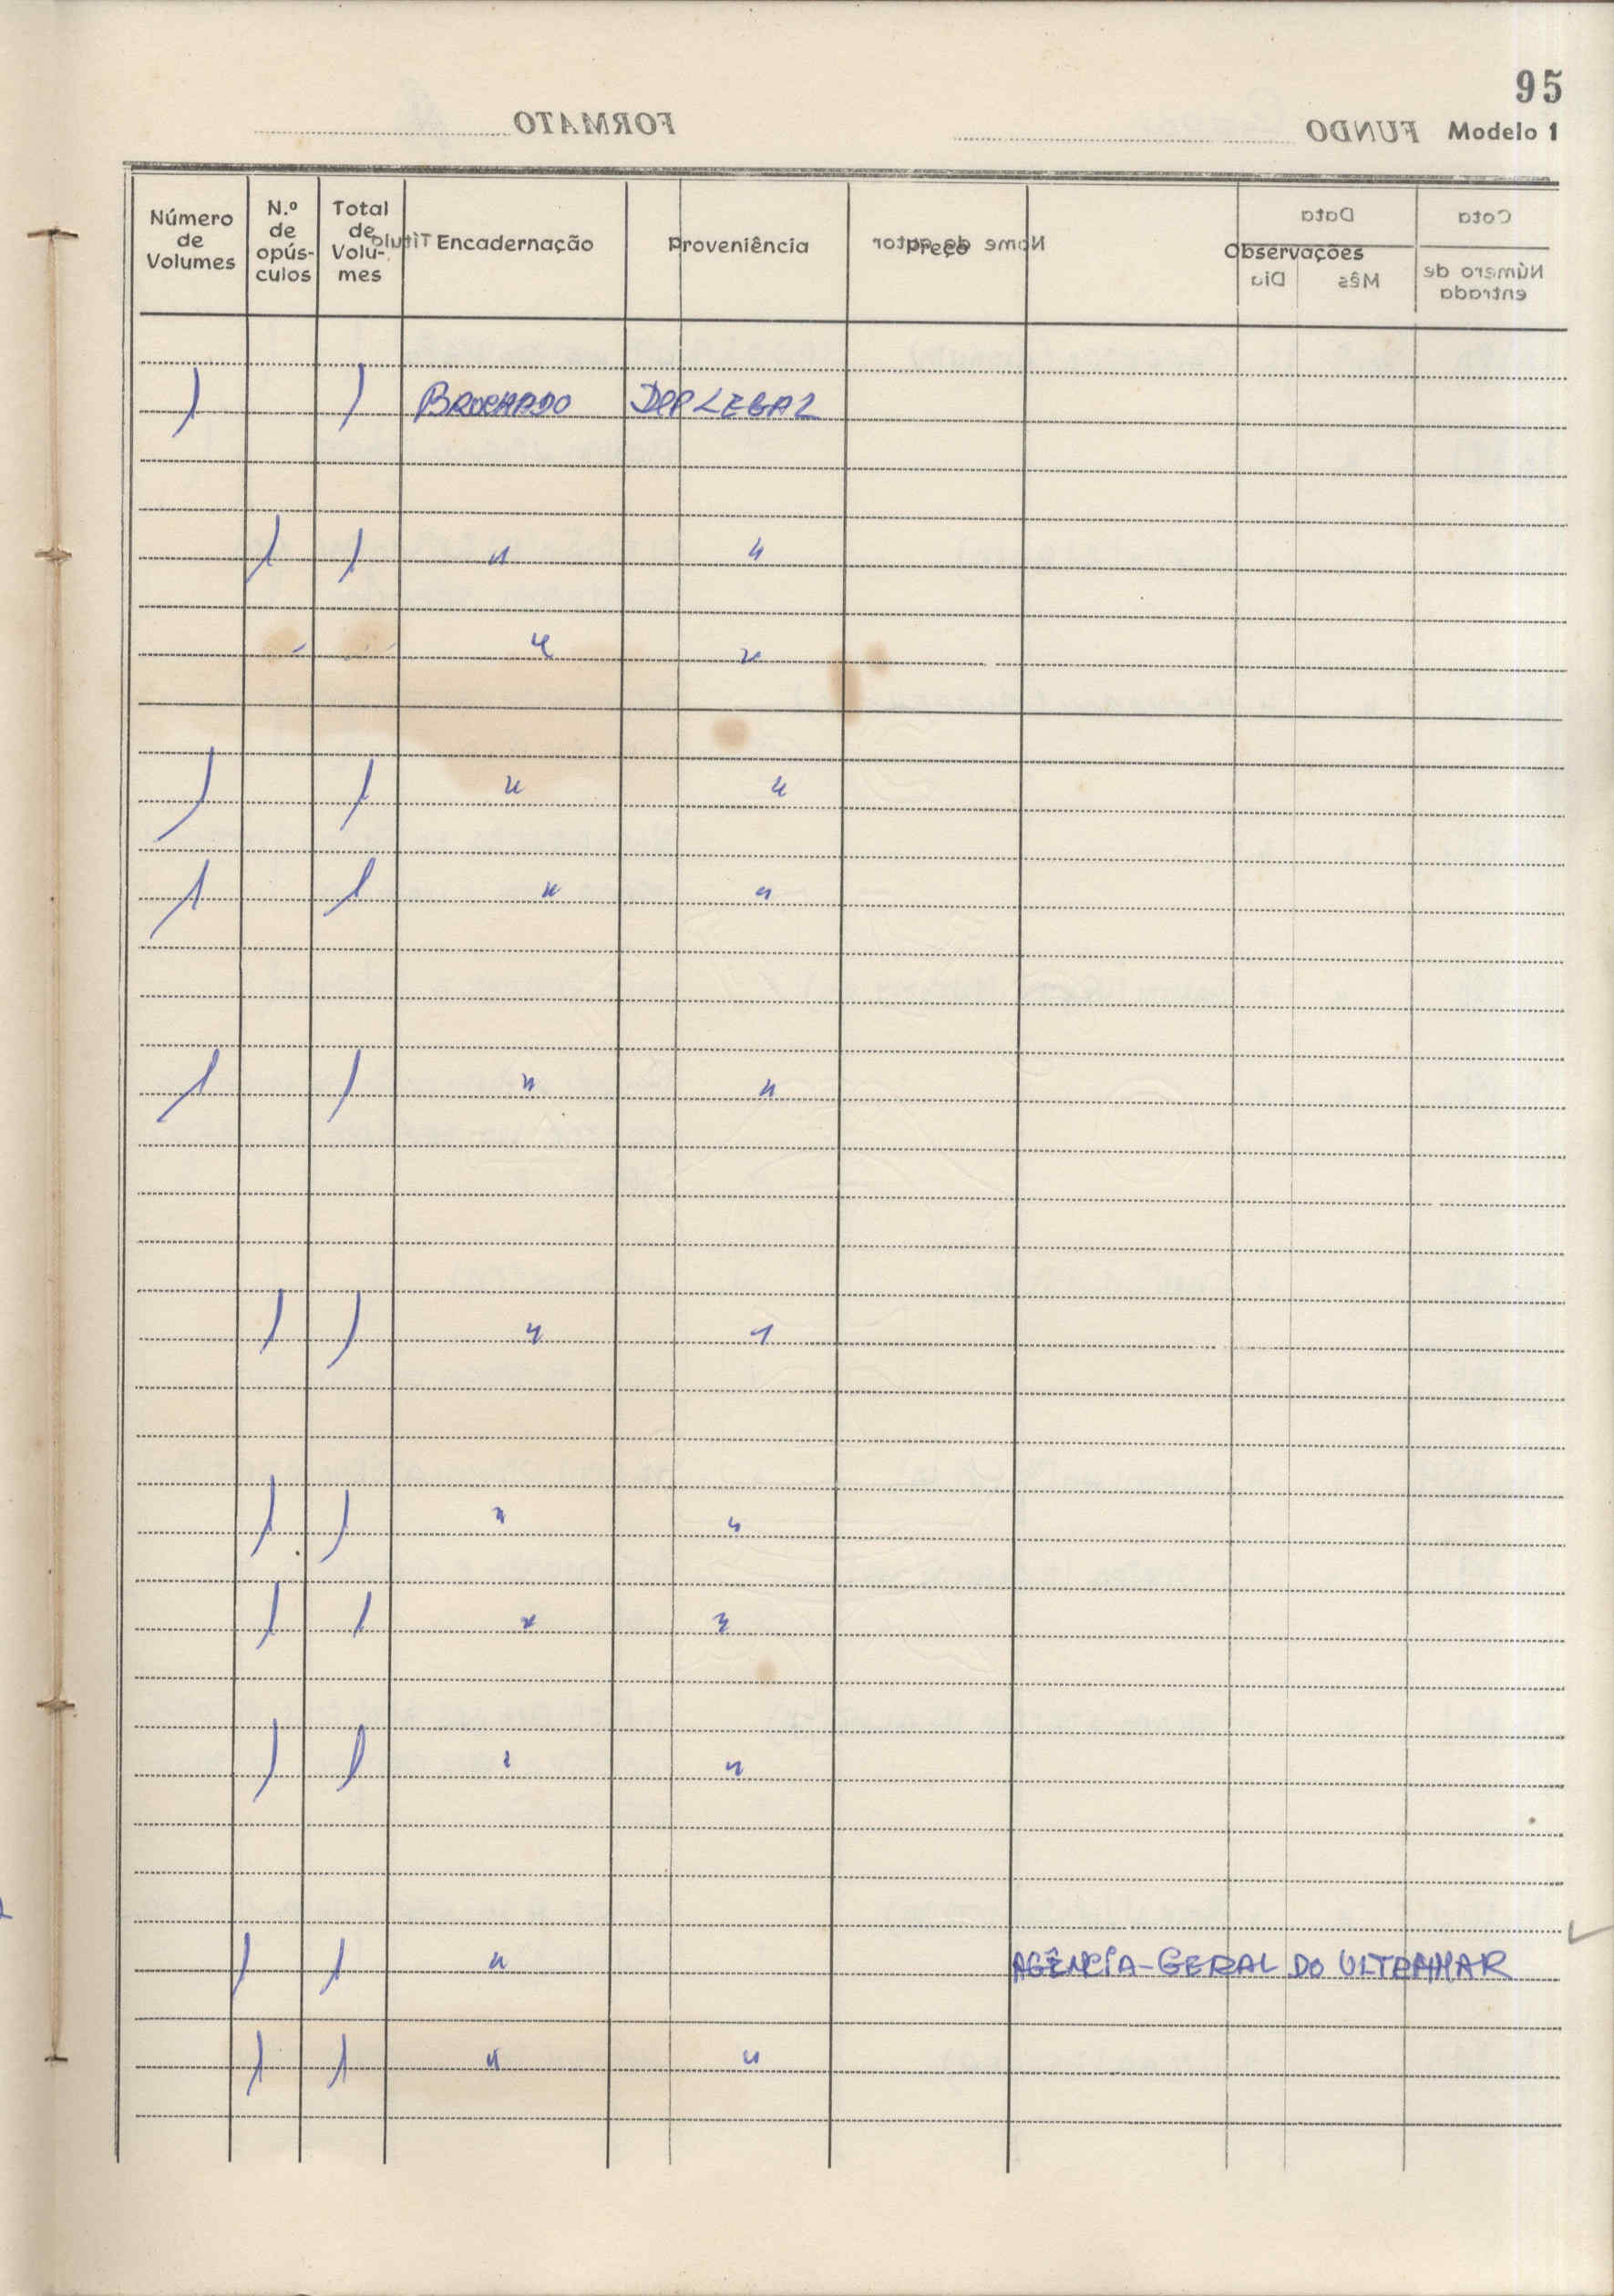 95
Modelo 1
FORMATO
FUNDO
Número de Volumes
N.º de opús-culos
Total de Volu-mes
Encadernação
Proveniência
Preço
Observações
Título
Nome do autor
Data
Dia
Mês
Cota
Número de entrada
1 1 BROCHADO DEP LEGAL
1 1 " "
" "
1 1 " "
1 1 " "
1 1 " "
1 1 " "
1 1 " "
1 1 " "
1 1 " "
1 1 " AGÊNCIA-GERAL DO ULTRAMAR
1 1 " "